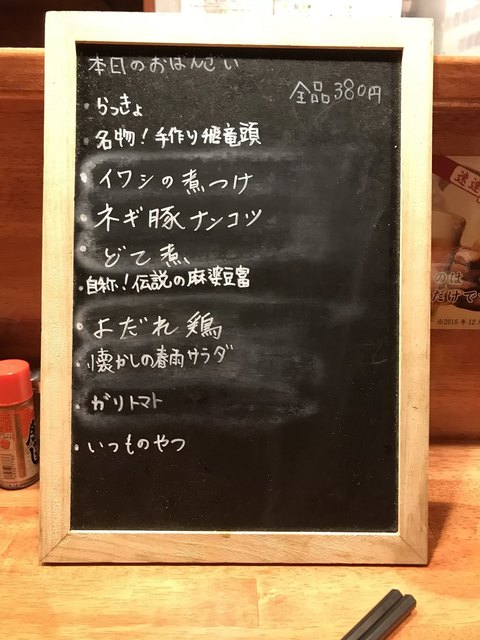 本日のおばんざい
全品380円
・らっきょ
名物!手作り飛竜頭
・イワシの煮つけ
・ネギ豚ナンコツ
・どて煮
自称!伝説の麻婆豆富
・よだれ鶏
・懐かしの春雨サラダ
・ガリトマト
・いつものやつ
のは
だけで
※2016年12